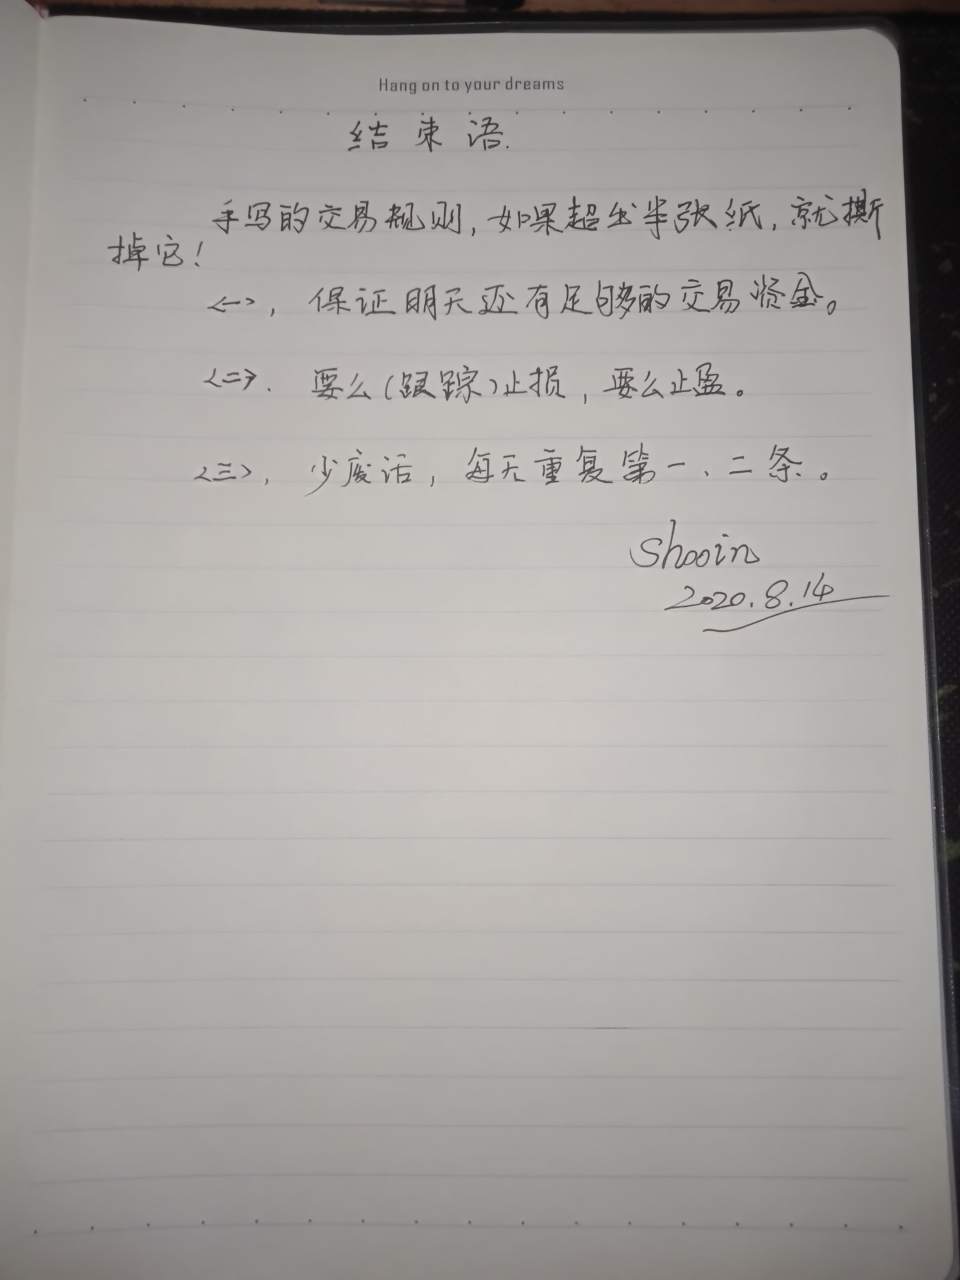 Hang on to your dreams
结束语.
手写的交易规则,如果超出半张纸,就撕
掉它!
<一>,保证明天还有足够的交易资金。
<二>.要么(跟踪)止损,要么止盈。
<三>,少废话,每天重复第一、二条。
Shooin
2020.8.14